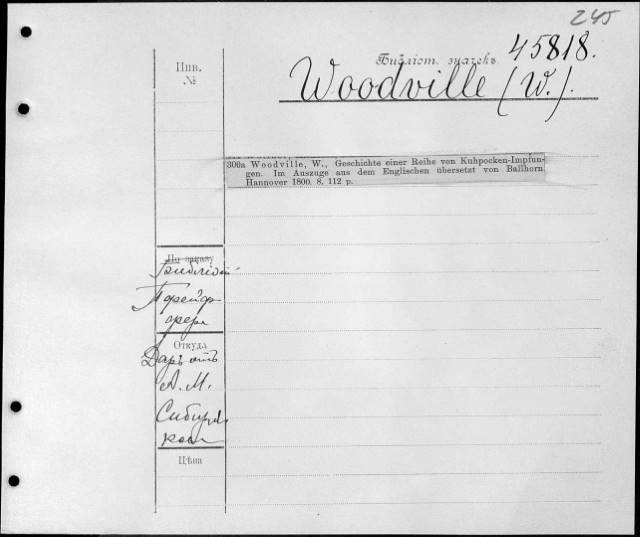 245
Библіот. значекъ 45818.
Инв.
№
Woodville (W.).
300a Woodville, W., Geschichte einer Reihe von Kuhpocken-Impfun-
gen. Im Auszuge aus dem Englischen übersetzt von Ballhorn
Hannover 1800. 8. 112 p.
По заказу
Библіот
Пфейф
фера
Откуда
Даръ отъ
А. М.
Сибир
Цѣна